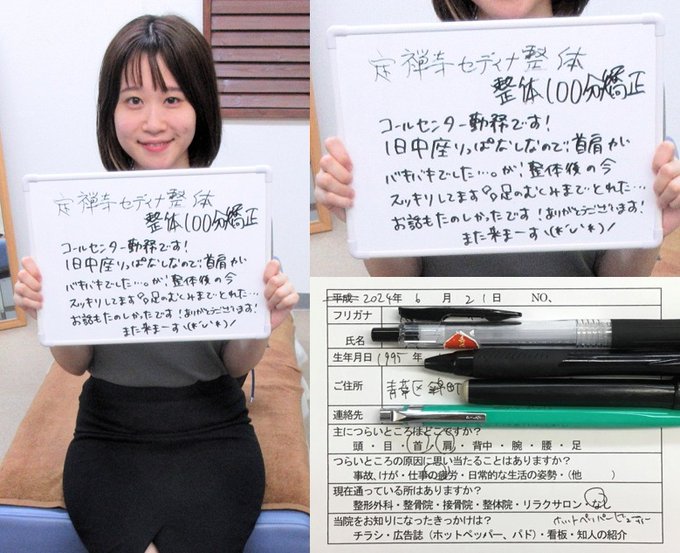 定禅寺セディナ整体
整体100分矯正
コールセンター勤務です!
1日中座りっぱなしなので首肩が
バキバキでした…。が!整体後の今
スッキリしてます。足のむくみまでとれた…
お話もたのしかったです!ありがとうございます!
また来まーす\(*'ω'*)/
定禅寺セディナ整体
整体100分矯正
コールセンター勤務です!
1日中座りっぱなしなので首肩が
バキバキでした…。が!整体後の今
スッキリしてます。足のむくみまでとれた…
お話もたのしかったです!ありがとうございます!
また来まーす\(*'ω'*)/
平成 2024年 6月 21日 NO、
フリガナ
氏名
生年月日 1995年
ご住所 青葉区 錦町
連絡先
主につらいところはどこですか?
頭・目・首・肩・背中・腕・腰・足
つらいところの原因に思い当たることはありますか?
事故、けが・仕事の疲労・日常的な生活の姿勢・(他 )
現在通っている所はありますか?
整形外科・整骨院・接骨院・整体院・リラクサロン・なし
当院をお知りになったきっかけは? ホットペッパービューティー
チラシ・広告誌(ホットペッパー、パド)・看板・知人の紹介